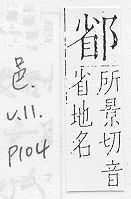 所景切音
省地名
邑.
v.11.
P104